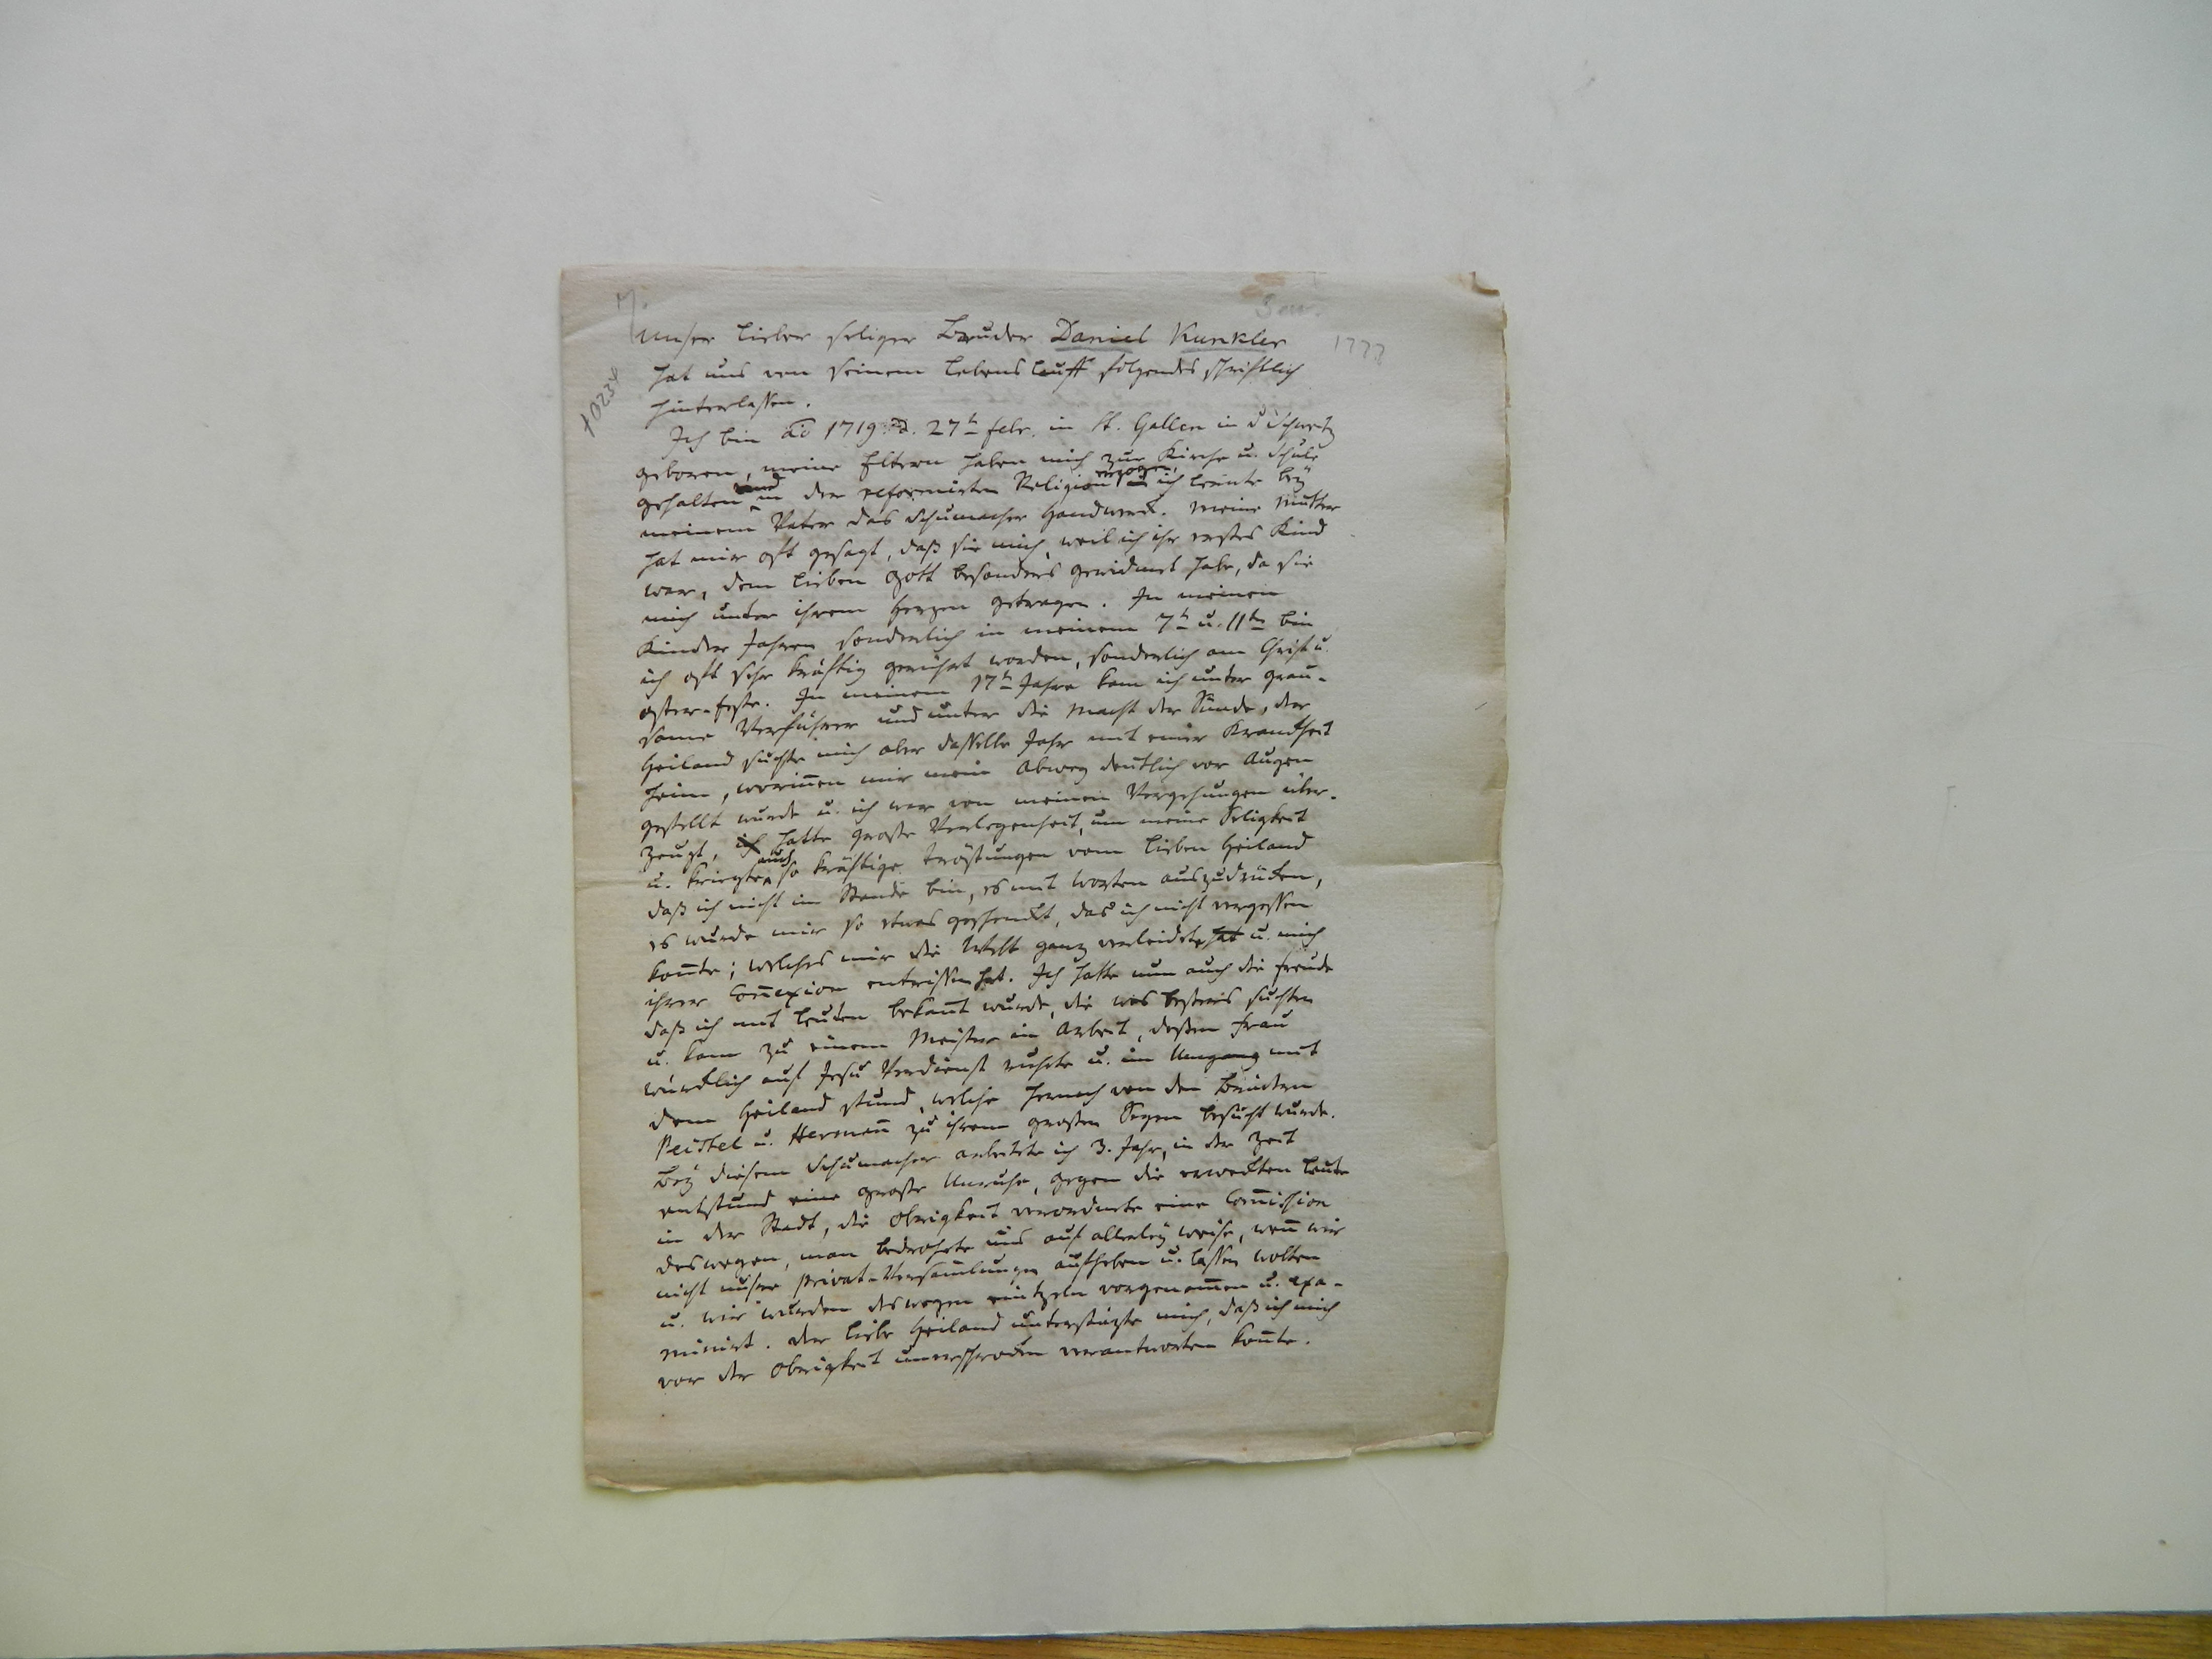 Unser lieber seliger Bruder Daniel Kunkler
1777
hat uns von seinem Lebenslauff folgendes schriftlich
hinterlassen.
Ich bin ao 1719. d. 27t febr. in St. Gallen in d Schweitz
geboren, meine Eltern haben mich zur Kirche u. Schule
gehalten und in der reformirten Religion erzogen, ich lernte bey
meinem Vater das Schumacher Handwerck. Meine Mutter
hat mir oft gesagt, daß sie mich, weil ich ihr erstes Kind
war, dem lieben Gott besonders gewidmet habe, da sie
mich unter ihrem Herzen getragen. In meinen
Kinder Jahren sonderlich in meinem 7t u. 11ten bin
ich oft sehr kräftig gerührt worden, sonderlich am Christ u.
oster-feste. In meinem 17t Jahre kam ich unter grau-
same Verführer und unter die Macht der Sünde, der
Heiland suchte mich aber dasselbe Jahr mit einer Kranckheit
heim, worinnen mir mein Abweg deutlich vor Augen
gestellt wurde u. ich war von meinen Vergehungen über-
zeugt, ich hatte große Verlegenheit, um meine Seligkeit
u. kriegte auch so kräftige tröstungen vom lieben Heiland
daß ich nicht im Stande bin, es mit Worten auszudrücken,
es wurde mir so etwas geschenckt, das ich nicht vergessen
konnte; welches mir die Welt ganz verleidete hat u. mich
ihrer Connexion entrissen hat. Ich hatte nun auch die freude
daß ich mit Leuten bekant wurde, die was besseres suchten
u. kam zu einem Meister in Arbeit, deßen Frau
würcklich auf Jesu Verdienst ruhete u. im Umgang mit
dem Heiland stund, welche hernach von den Brüdern
Peistel u. Hermann zu ihrem großen Segen besucht wurde.
Bey diesem Schumacher arbeitete ich 3. Jahr, in der Zeit
entstund eine große Unruhe, gegen die erweckten Leute
in der Stadt, die Obrigkeit verordnete eine Commission
deswegen, man bedrohete uns auf allerley weise, wenn wir
nicht unsere privat-Versammlungen aufheben u. lassen wolten
u. wir wurden deswegen eintzeln vorgenommen u. exa-
minirt. der liebe Heiland unterstüzte mich, daß ich mich
vor der Obrigkeit unerschrocken verantworten konnte.